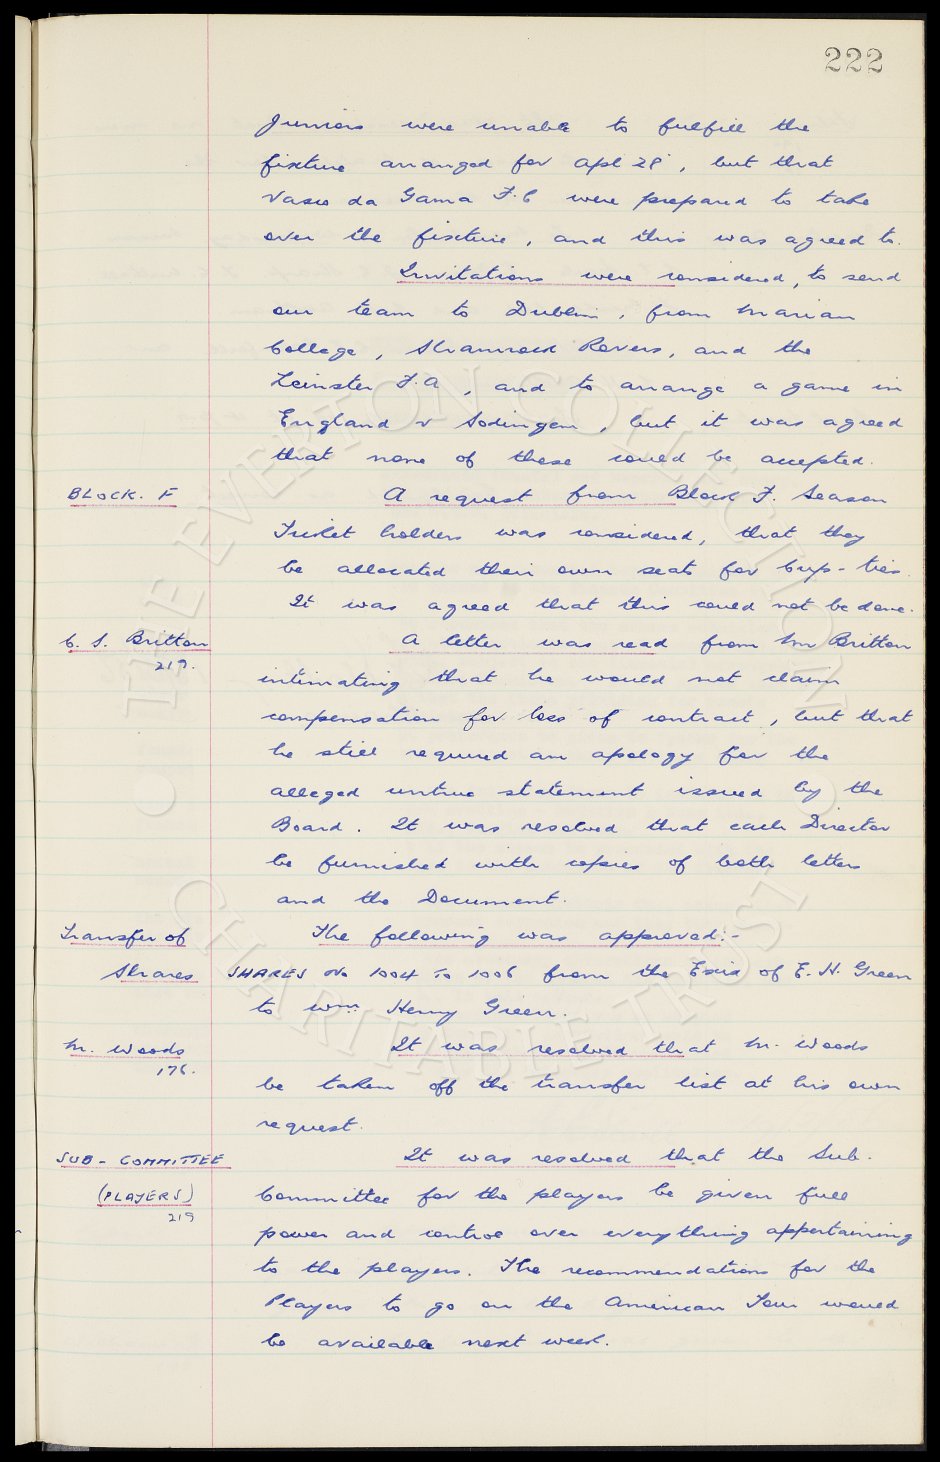 222
Juniors were unable to fulfill the
fixture arranged for Apl 28, but that
Vasco da Gama F.C were prepared to take
over the fixture, and this was agreed to.
Invitations were considered, to send
our team to Dublin, from Marian
College, Shamrock Rovers, and the
Leinster F.A, and to arrange a game in
England v Sodingen, but it was agreed
that none of these could be accepted.
BLOCK. F A request from Block F. Season
Ticket holders was considered, that they
be allocated their own seats for Cup-ties.
It was agreed that this could not be done.
C. S. Britton A letter was read from Mr Britton
219.
intimating that he would not claim
compensation for loss of contract, but that
he still required an apology for the
alleged untrue statement issued by the
Board. It was resolved that each Director
be furnished with copies of both letters
and the Document.
Transfer of The following was approved:-
Shares SHARES No 1004 To 1006 from the Exix of E. H. Green
to Wm. Henry Green.
M. Woods It was resolved that M. Woods
176.
be taken off the transfer list at his own
request.
SUB-COMMITTEE It was resolved that the Sub.
(PLAYERS) Committee for the players be given full
219
power and control over everything appertaining
to the players. The recommendations for the
Players to go on the American Tour would
be available next week.
THE EVERTON COLLECTION
CHARITABLE TRUST